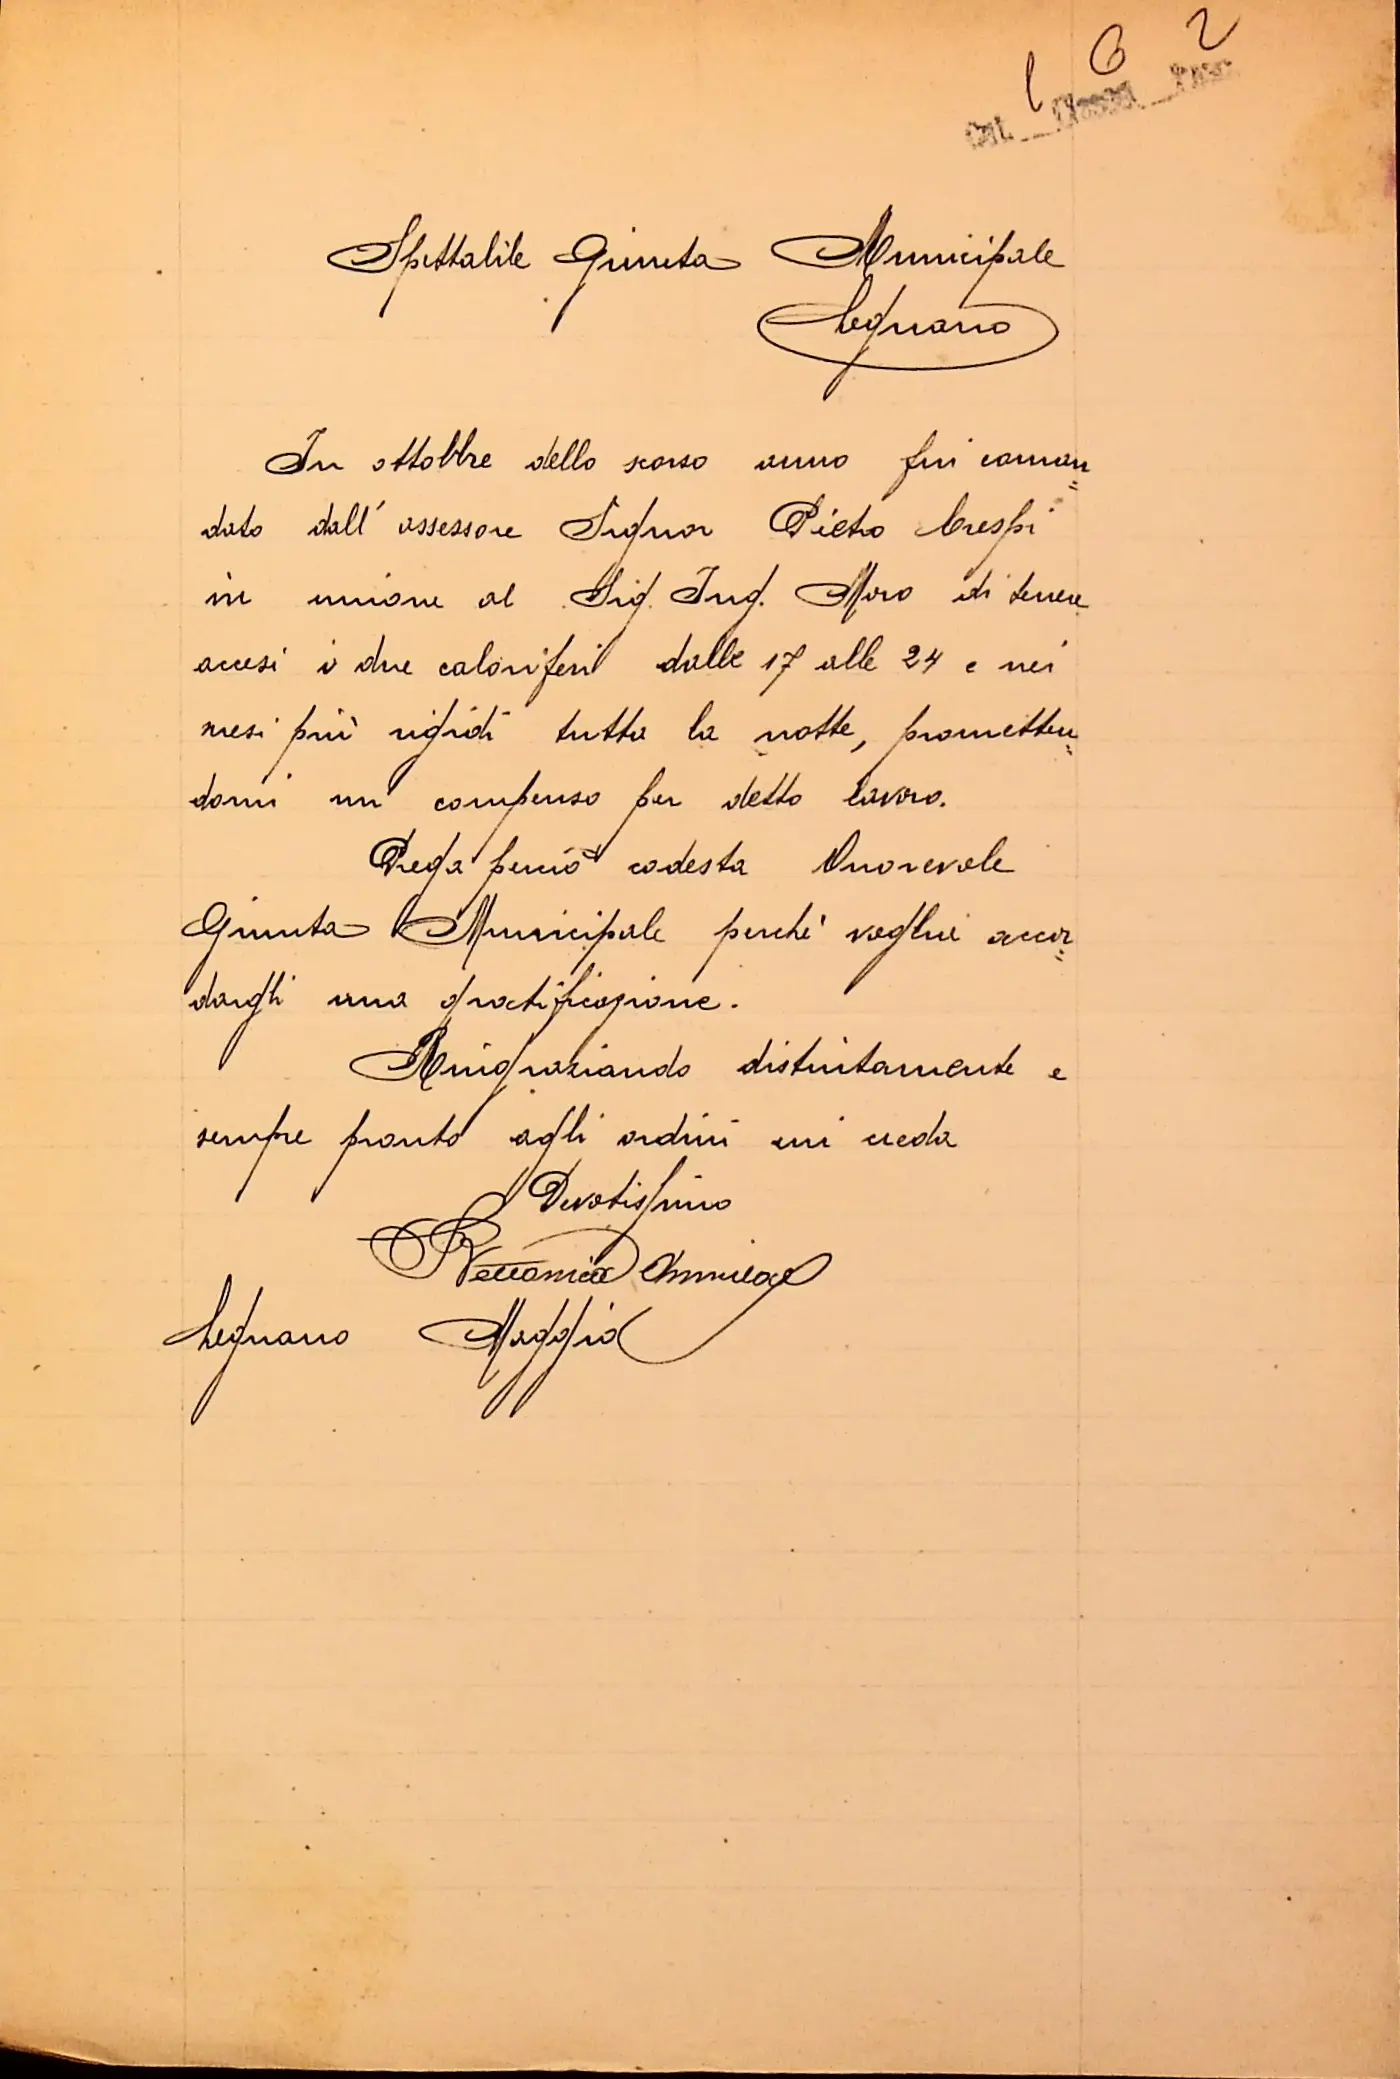 1 6 2
Cat. Classe Fasc.
Spettabile Giunta Municipale
Legnano
In ottobbre dello scorso anno fui coman=
dato dall'assessore Signor Pietro Crespi
in unione al Sig. Ing. Moro di tenere
accesi i due caloriferi dalle 17 alle 24 e nei
mesi più rigidi tutta la notte, prometten=
domi un compenso per detto lavoro.
Prega perciò codesta Onorevole
Giunta Municipale perchè voglia accor=
dargli una gratificazione.
Ringraziando distintamente e
sempre pronto agli ordini mi creda
Devotissimo
Legnano Maggio